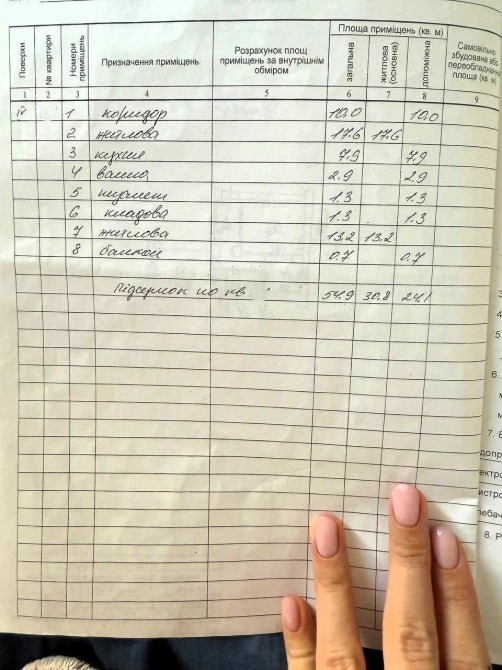 Поверхи № квартири Номери приміщень Призначення приміщень Розрахунок площ приміщень за внутрішнім обміром Площа приміщень (кв. м) загальна житлова (основна) допоміжна Самовільно збудована або переобладнана площа (кв. м)
1 2 3 4 5 6 7 8 9
IV 1 коридор 10,0 10,0
2 житлова 17.6 17.6
3 кухня 7.9 7.9
4 ванна 2.9 2.9
5 1.3 1.3
6 кладова 1.3 1.3
7 житлова 13,2 13,2
8 балкон 0.7 0.7
Підсумок по кв. 54.9 30.8 24.1
3
4
5
6.
м
м
7. В
допр
ектро
истро
лебач
8. Р